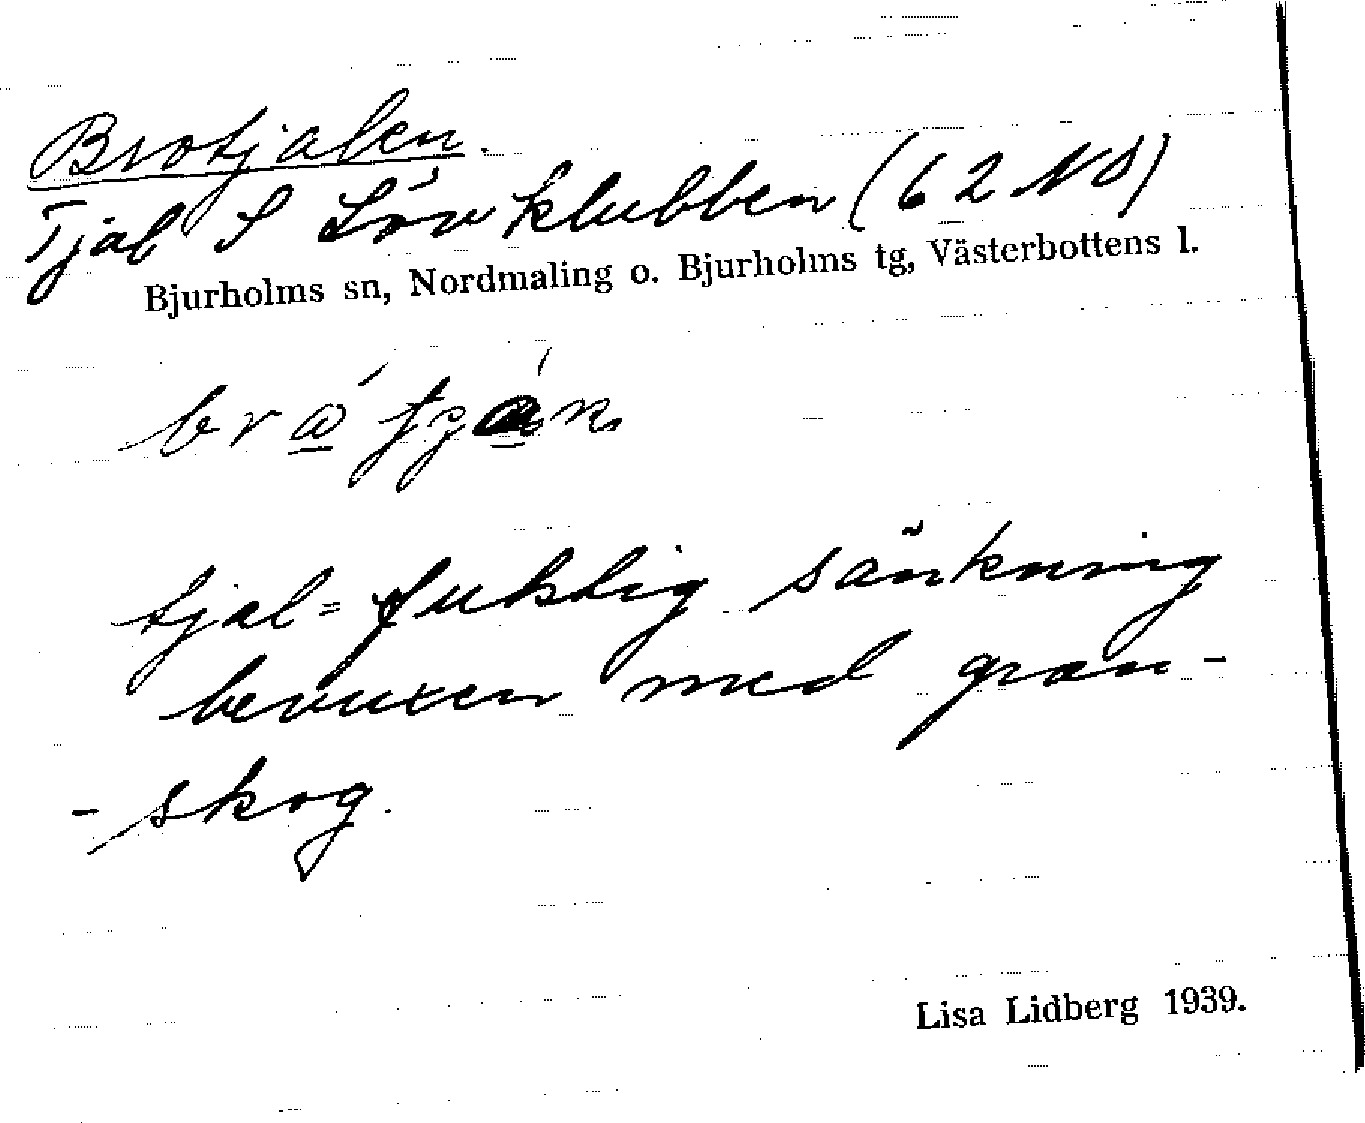 Brotjalen.
Tjal S Lövklubben (62 NO)
Bjurholms sn, Nordmaling o. Bjurholms tg, Västerbottens l.
tjal = fuktig sänkning
bevuxen med gran-
- skog.
Lisa Lidberg 1939.